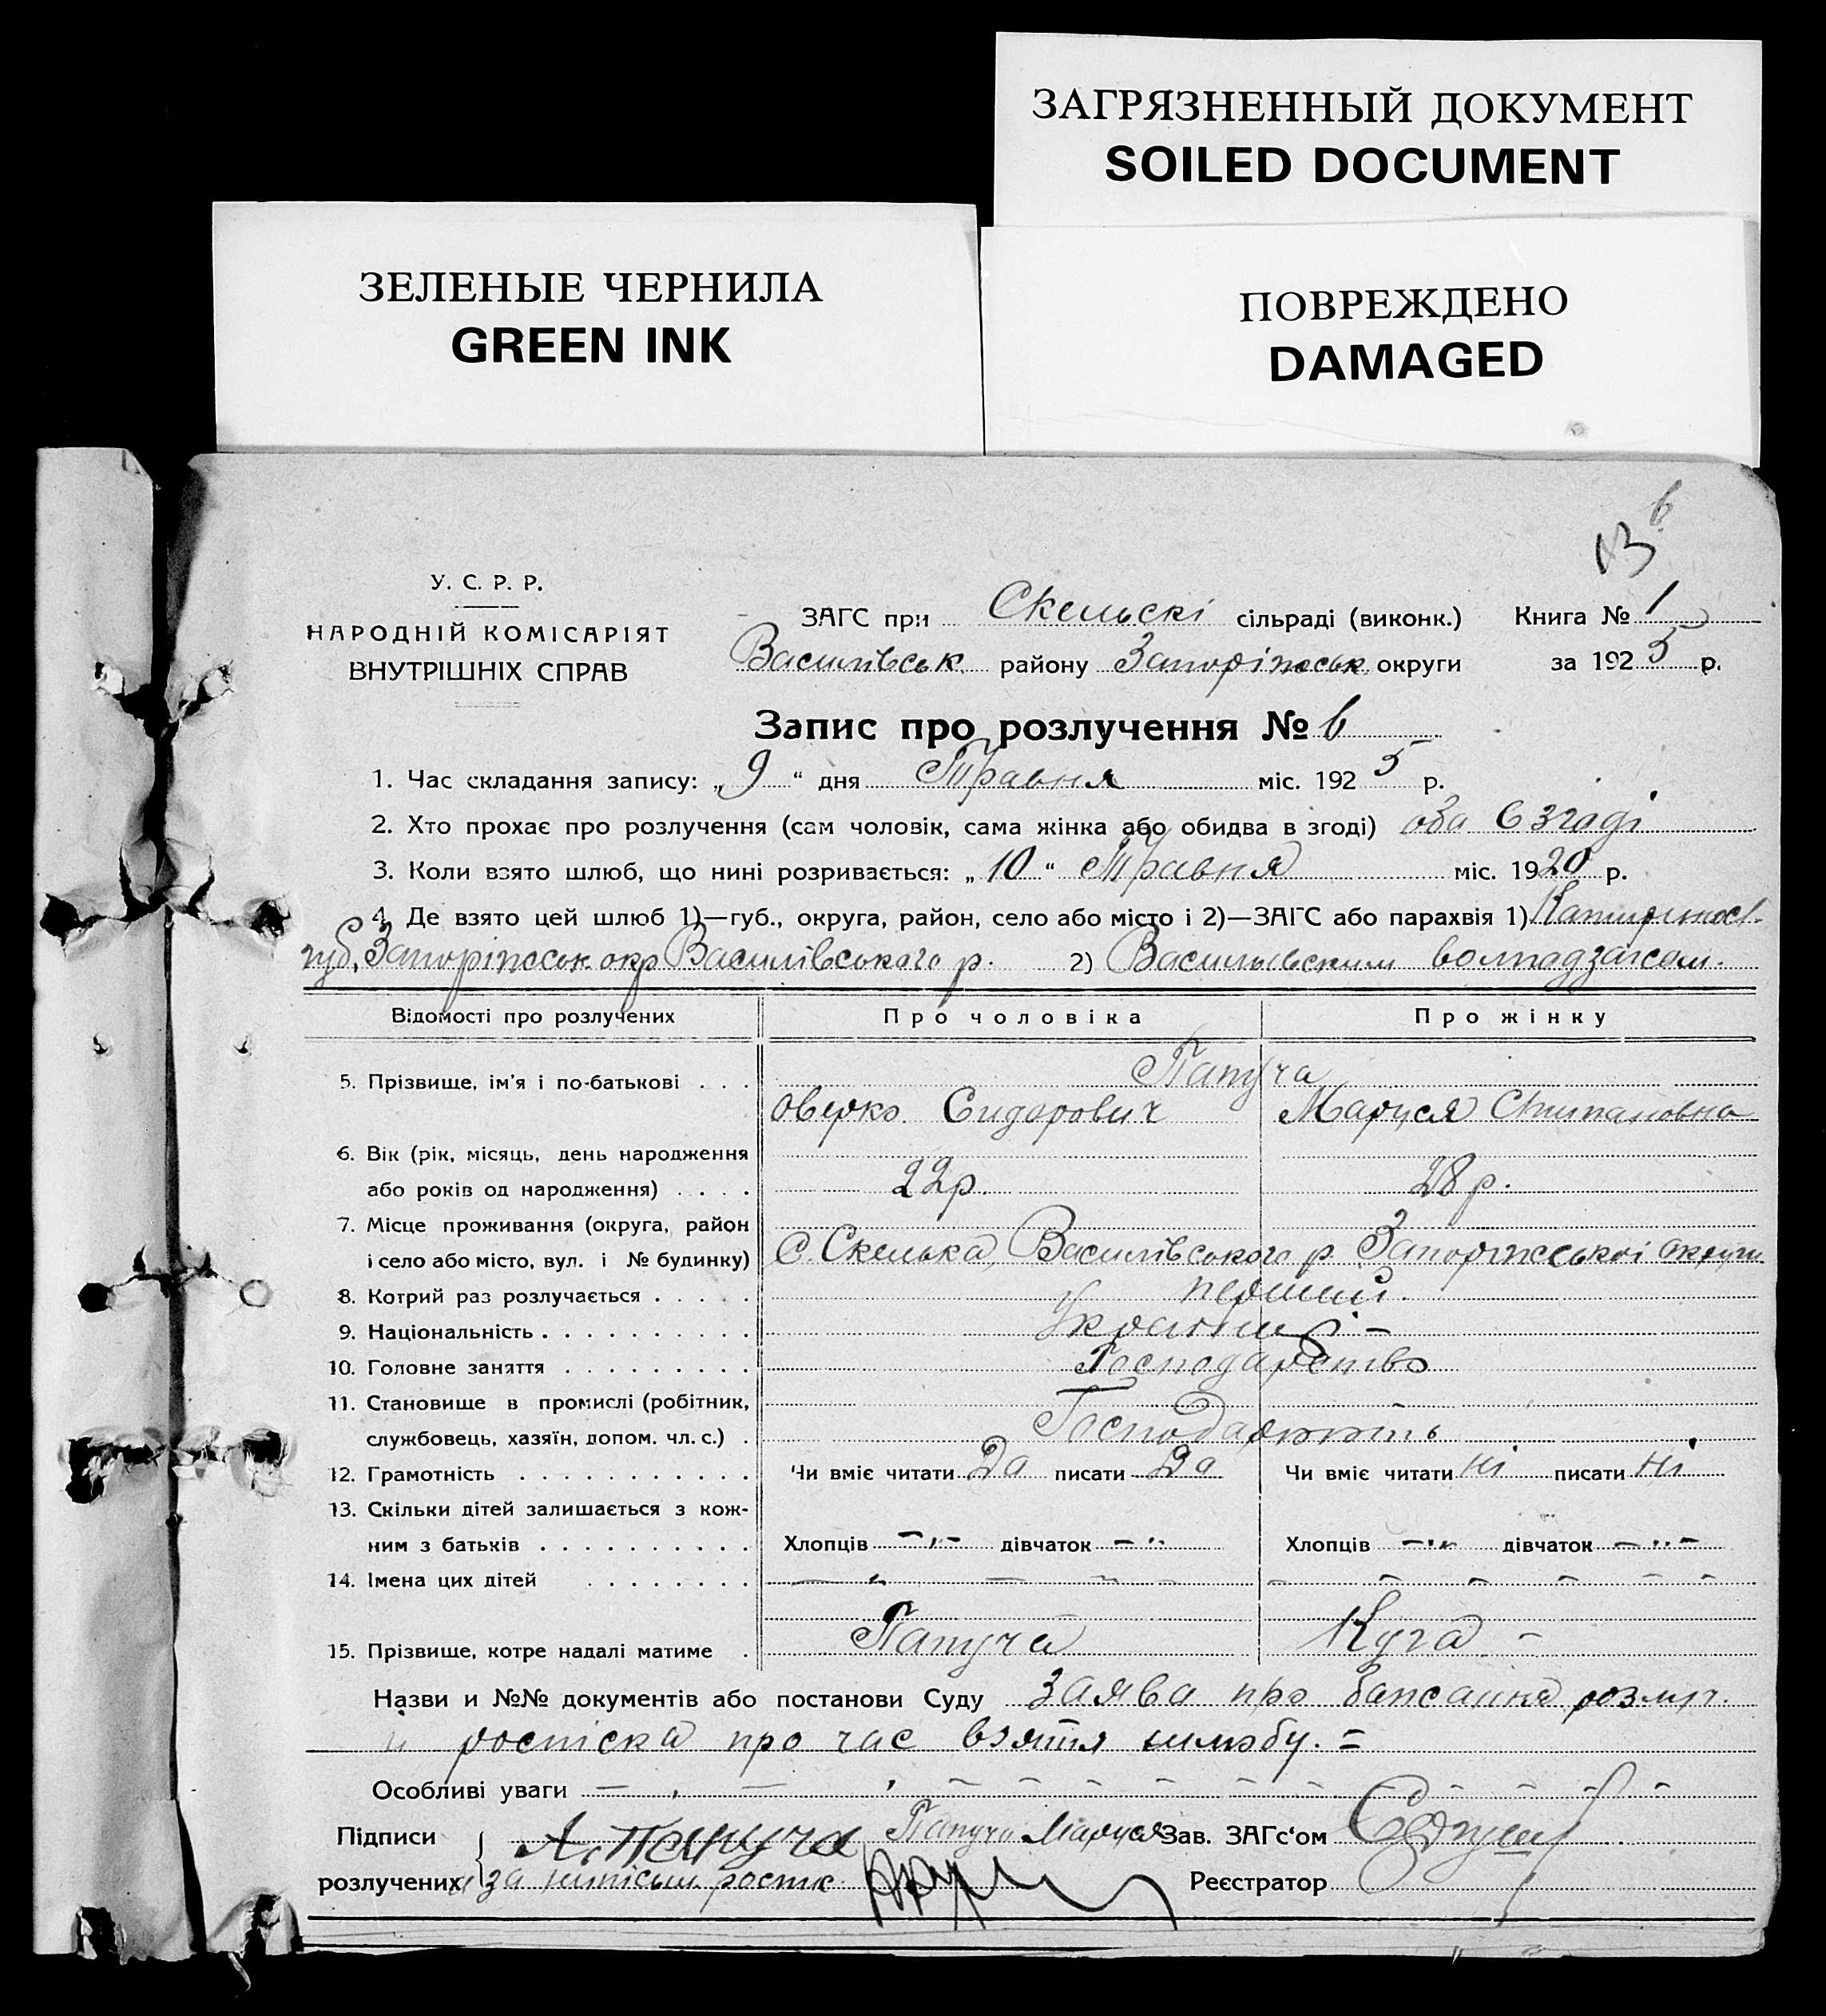 ЗАГРЯЗНЕННЫЙ ДОКУМЕНТ
SOILED DOCUMENT
ЗЕЛЕНЫЕ ЧЕРНИЛА
GREEN INK
ПОВРЕЖДЕНО
DAMAGED
6
13
У. С. Р. Р.
НАРОДНІЙ КОМІСАРІЯТ
ВНУТРІШНІХ СПРАВ
ЗАГС при Скельскі сільраді (виконк.) Книга № 1
Василівськ району Запоріжськ округи за 1925 р.
Запис про розлучення № 6
1. Час складання запису: „9“ дня Травня міс. 1925 р.
2. Хто прохає про розлучення (сам чоловік, сама жінка або обидва в згоді) оба в згоді
3. Коли взято шлюб, що нині розривається: „10“ Травня міс. 1920 р.
4. Де взято цей шлюб 1)—губ., округа, район, село або місто і 2)—ЗАГС або парахвія 1)
губ, Запоріжськ. окр Василівського р. 2) Васильевским волподзагсом.
Відомості про розлучених Про чоловіка Про жінку
5. Прізвище, ім'я і по-батькові . . . Папуча
Оверко Сидорович Маруся Степановна
6. Вік (рік, місяць, день народження
або років од народження) . . . . 22 р. 28 р.
7. Місце проживання (округа, район
і село або місто, вул. і № будинку) С. Скелька, Василівського р. Запоріжської округи
8. Котрий раз розлучається . . . . . перший.
9. Національність . . . . . . . . . . Українці -
10. Головне заняття . . . . . . . . . Господарство
11. Становище в промислі (робітник,
службовець, хазяїн, допом. чл. с.) .
12. Грамотність . . . . . . . . . . . Чи вміє читати Да писати Да Чи вміє читати ні писати ні
13. Скільки дітей залишається з кож-
ним з батьків . . . . . . . . . . Хлопців — „ — дівчаток — „ Хлопців — „ дівчаток — „ —
14. Імена цих дітей . . . . . . . .
15. Прізвище, котре надалі матиме . Папуча Куча -
Назви и №№ документів або постанови Суду Заява про бажання розлуч.
и роспіска про час взяття шлюбу. =
Особливі уваги
Підписи А. Папуча Папуча Маруся Зав. ЗАГс'ом
розлучених за
Реєстратор